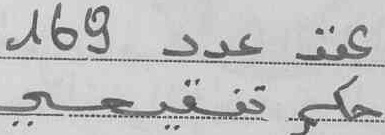 عقد عدد 169
حكم تنقيحي